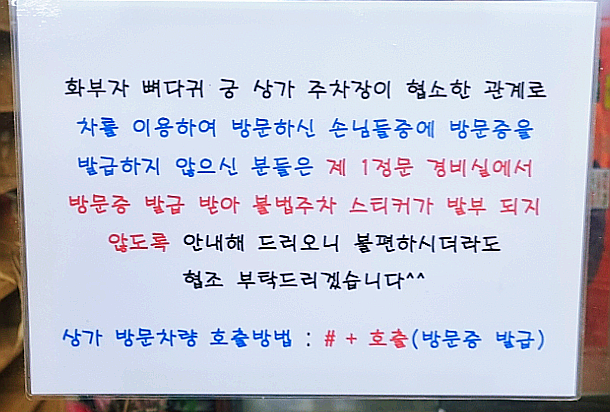 화부자 뼈다귀 궁 상가 주차장이 협소한 관계로
차를 이용하여 방문하신 손님들중에 방문증을
발급하지 않으신 분들은 제 1정문 경비실에서
방문증 발급 받아 불법주차 스티커가 발부 되지
않도록 안내해 드리오니 불편하시더라도
협조 부탁드리겠습니다^^
상가 방문차량 호출방법 : # + 호출(방문증 발급)